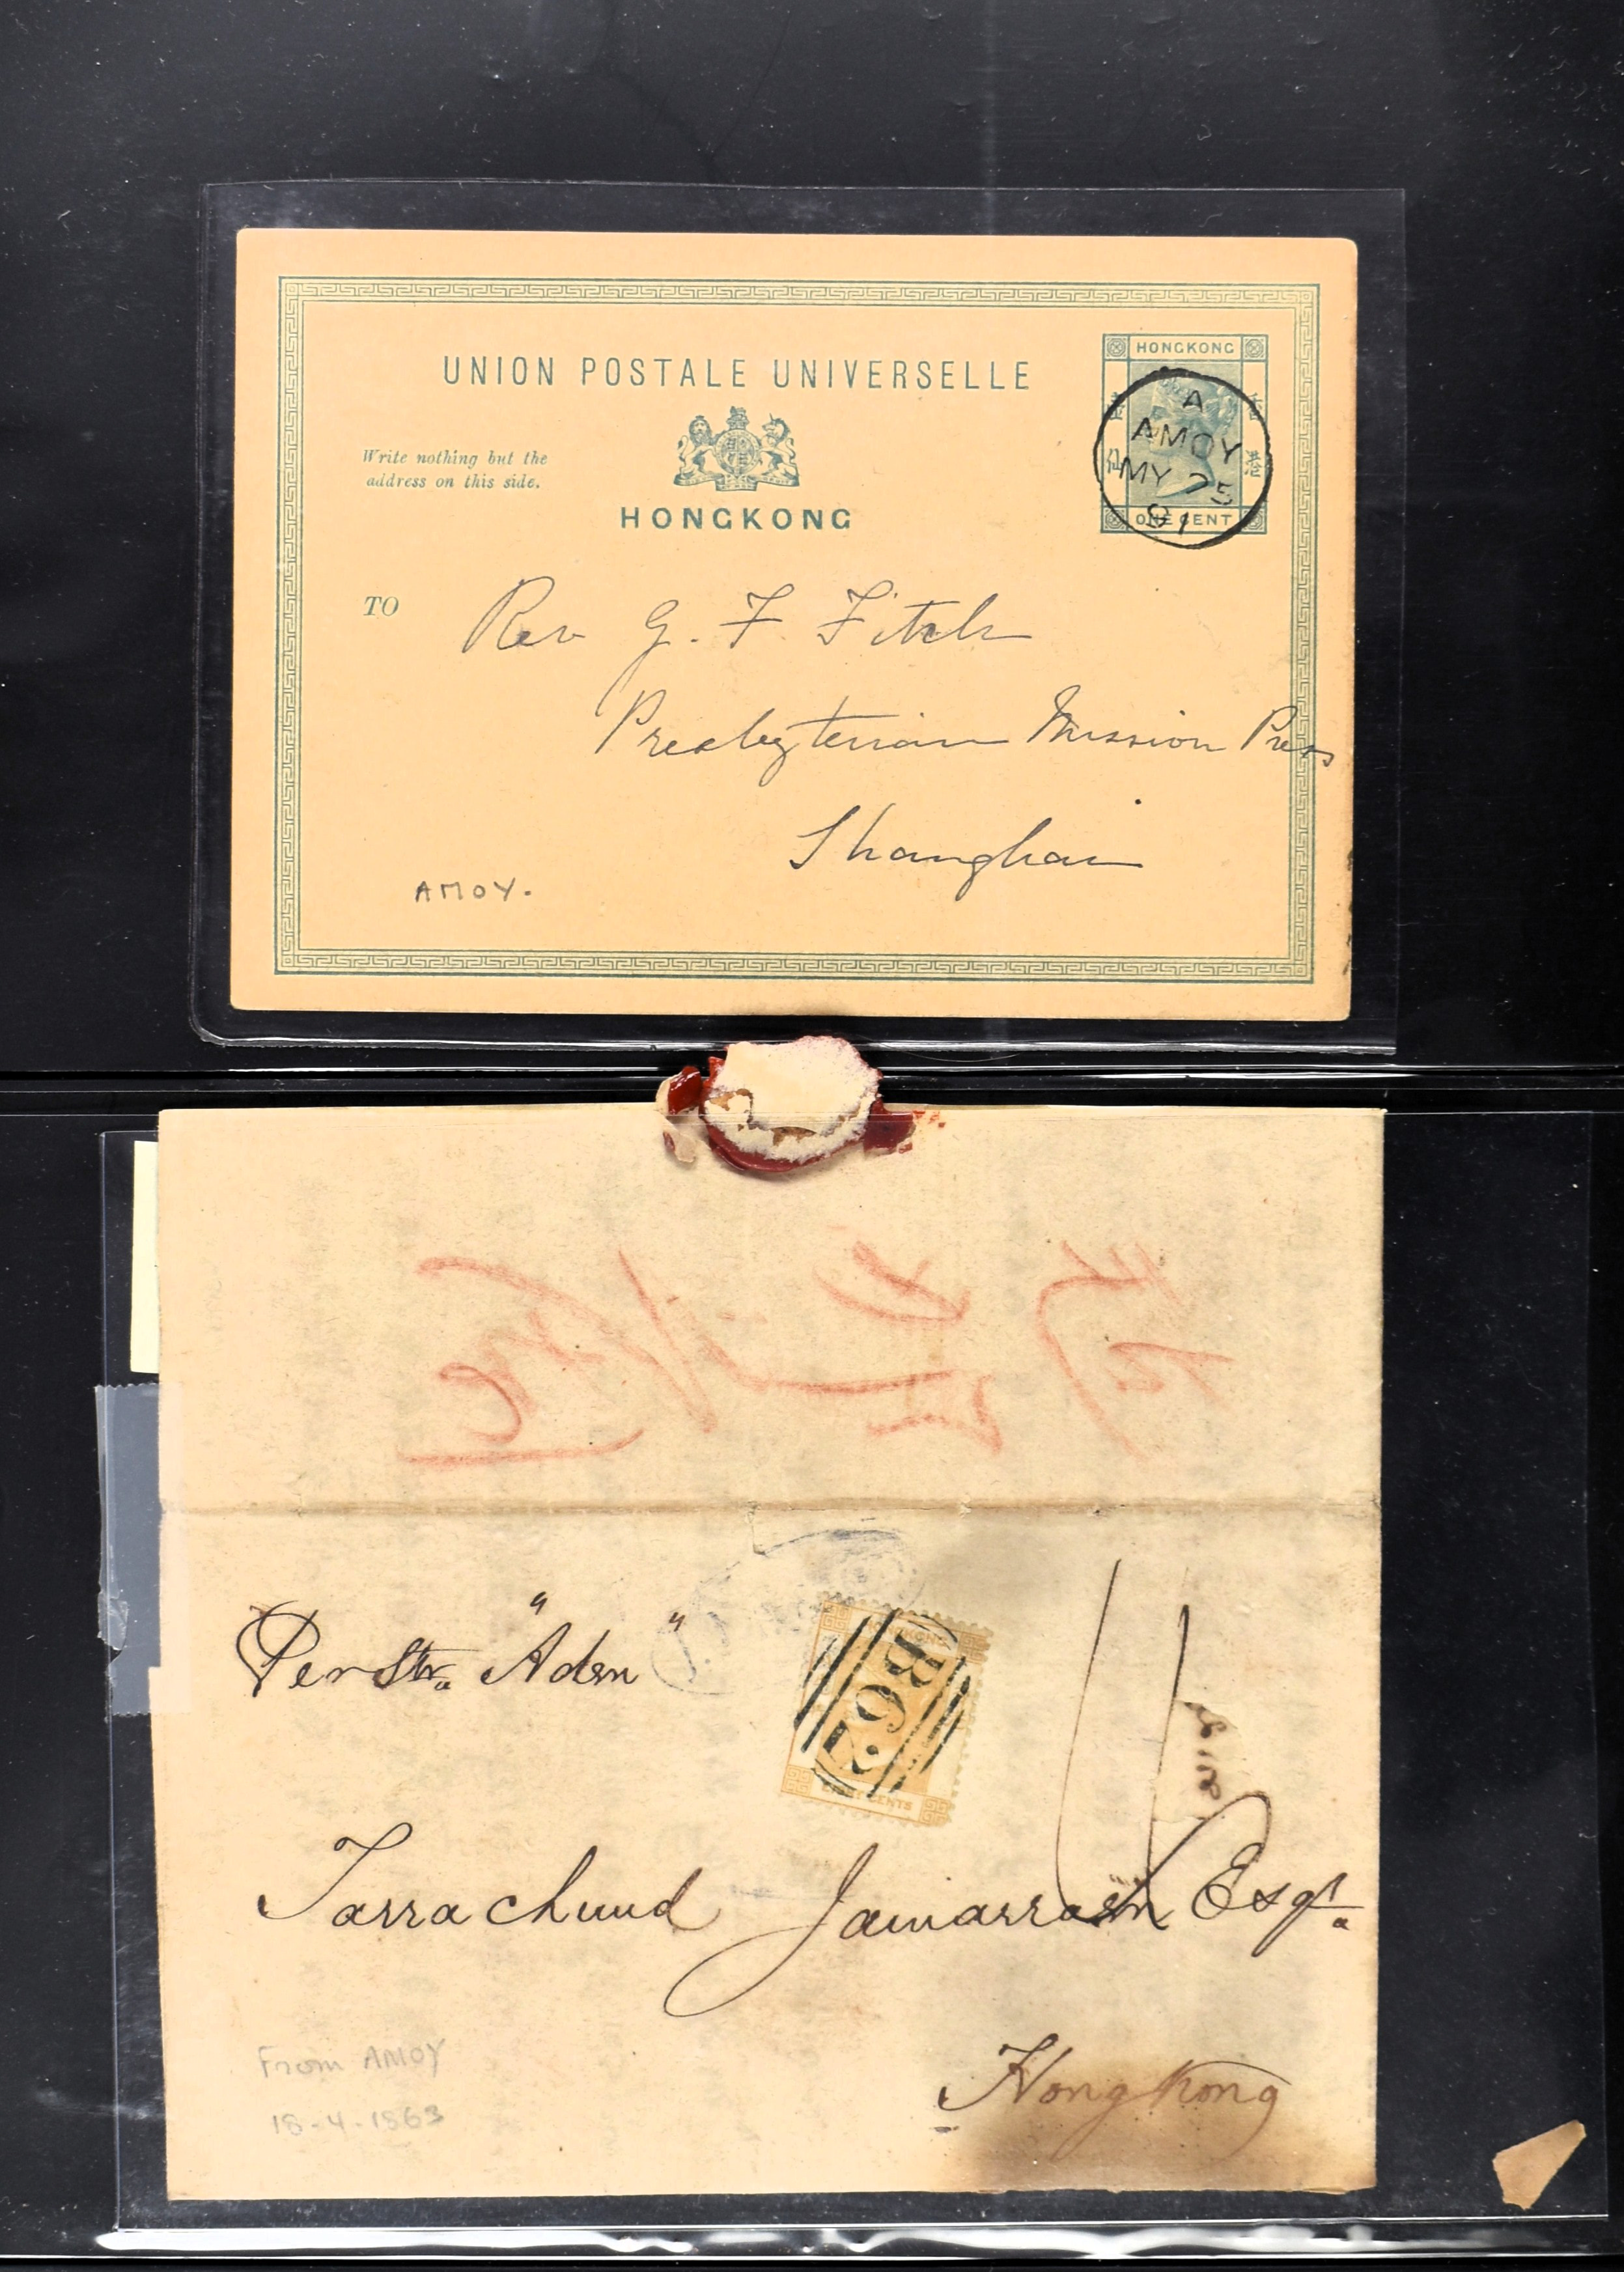 UNION POSTALE UNIVERSELLE
HONGKONG
Write nothing but the
address on this side.
HONGKONG
A
AMOY
MY 25
91
ONE CENT
TO
Rev G. F Fitch
Presbyterian Mission Press
Shanghai
AMOY.
Per Str "Aden"
B62
EIGHT CENTS
Tarrachund Jamarram Esqr
Hong Kong
From AMOY
18-4-1863